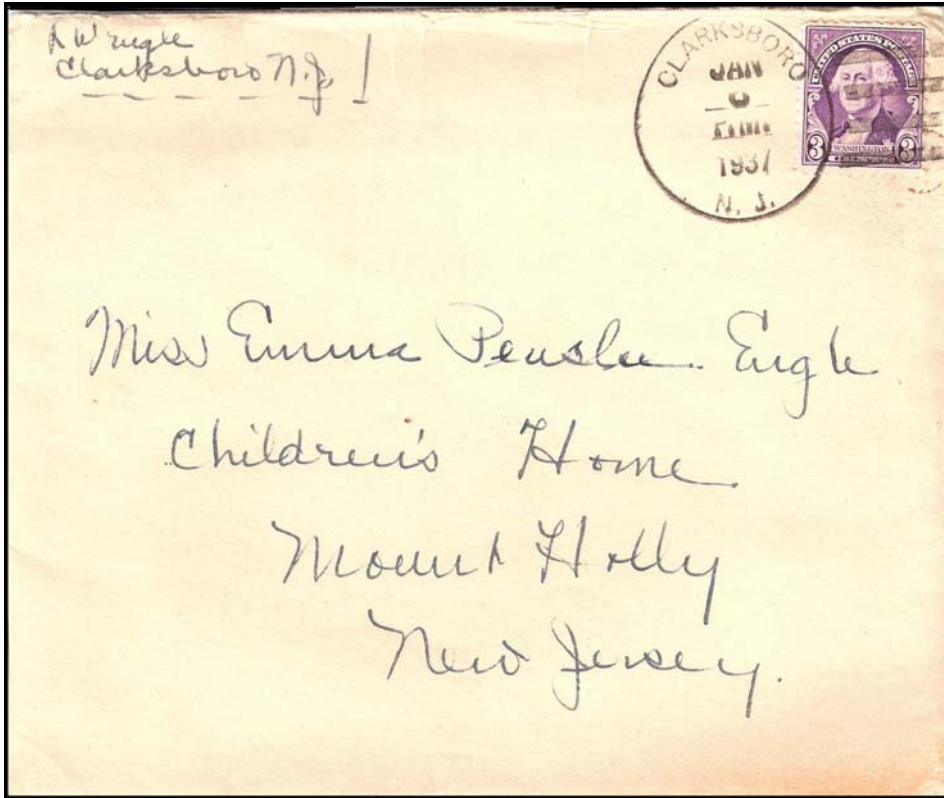 Clarksboro N.J.
CLARKSBORO
JAN
1937
N. J.
UNITED STATES POSTAGE
3 WASHINGTON 3
Miss Emma Peaslee Engle
Children's Home
Mount Holly
New Jersey.